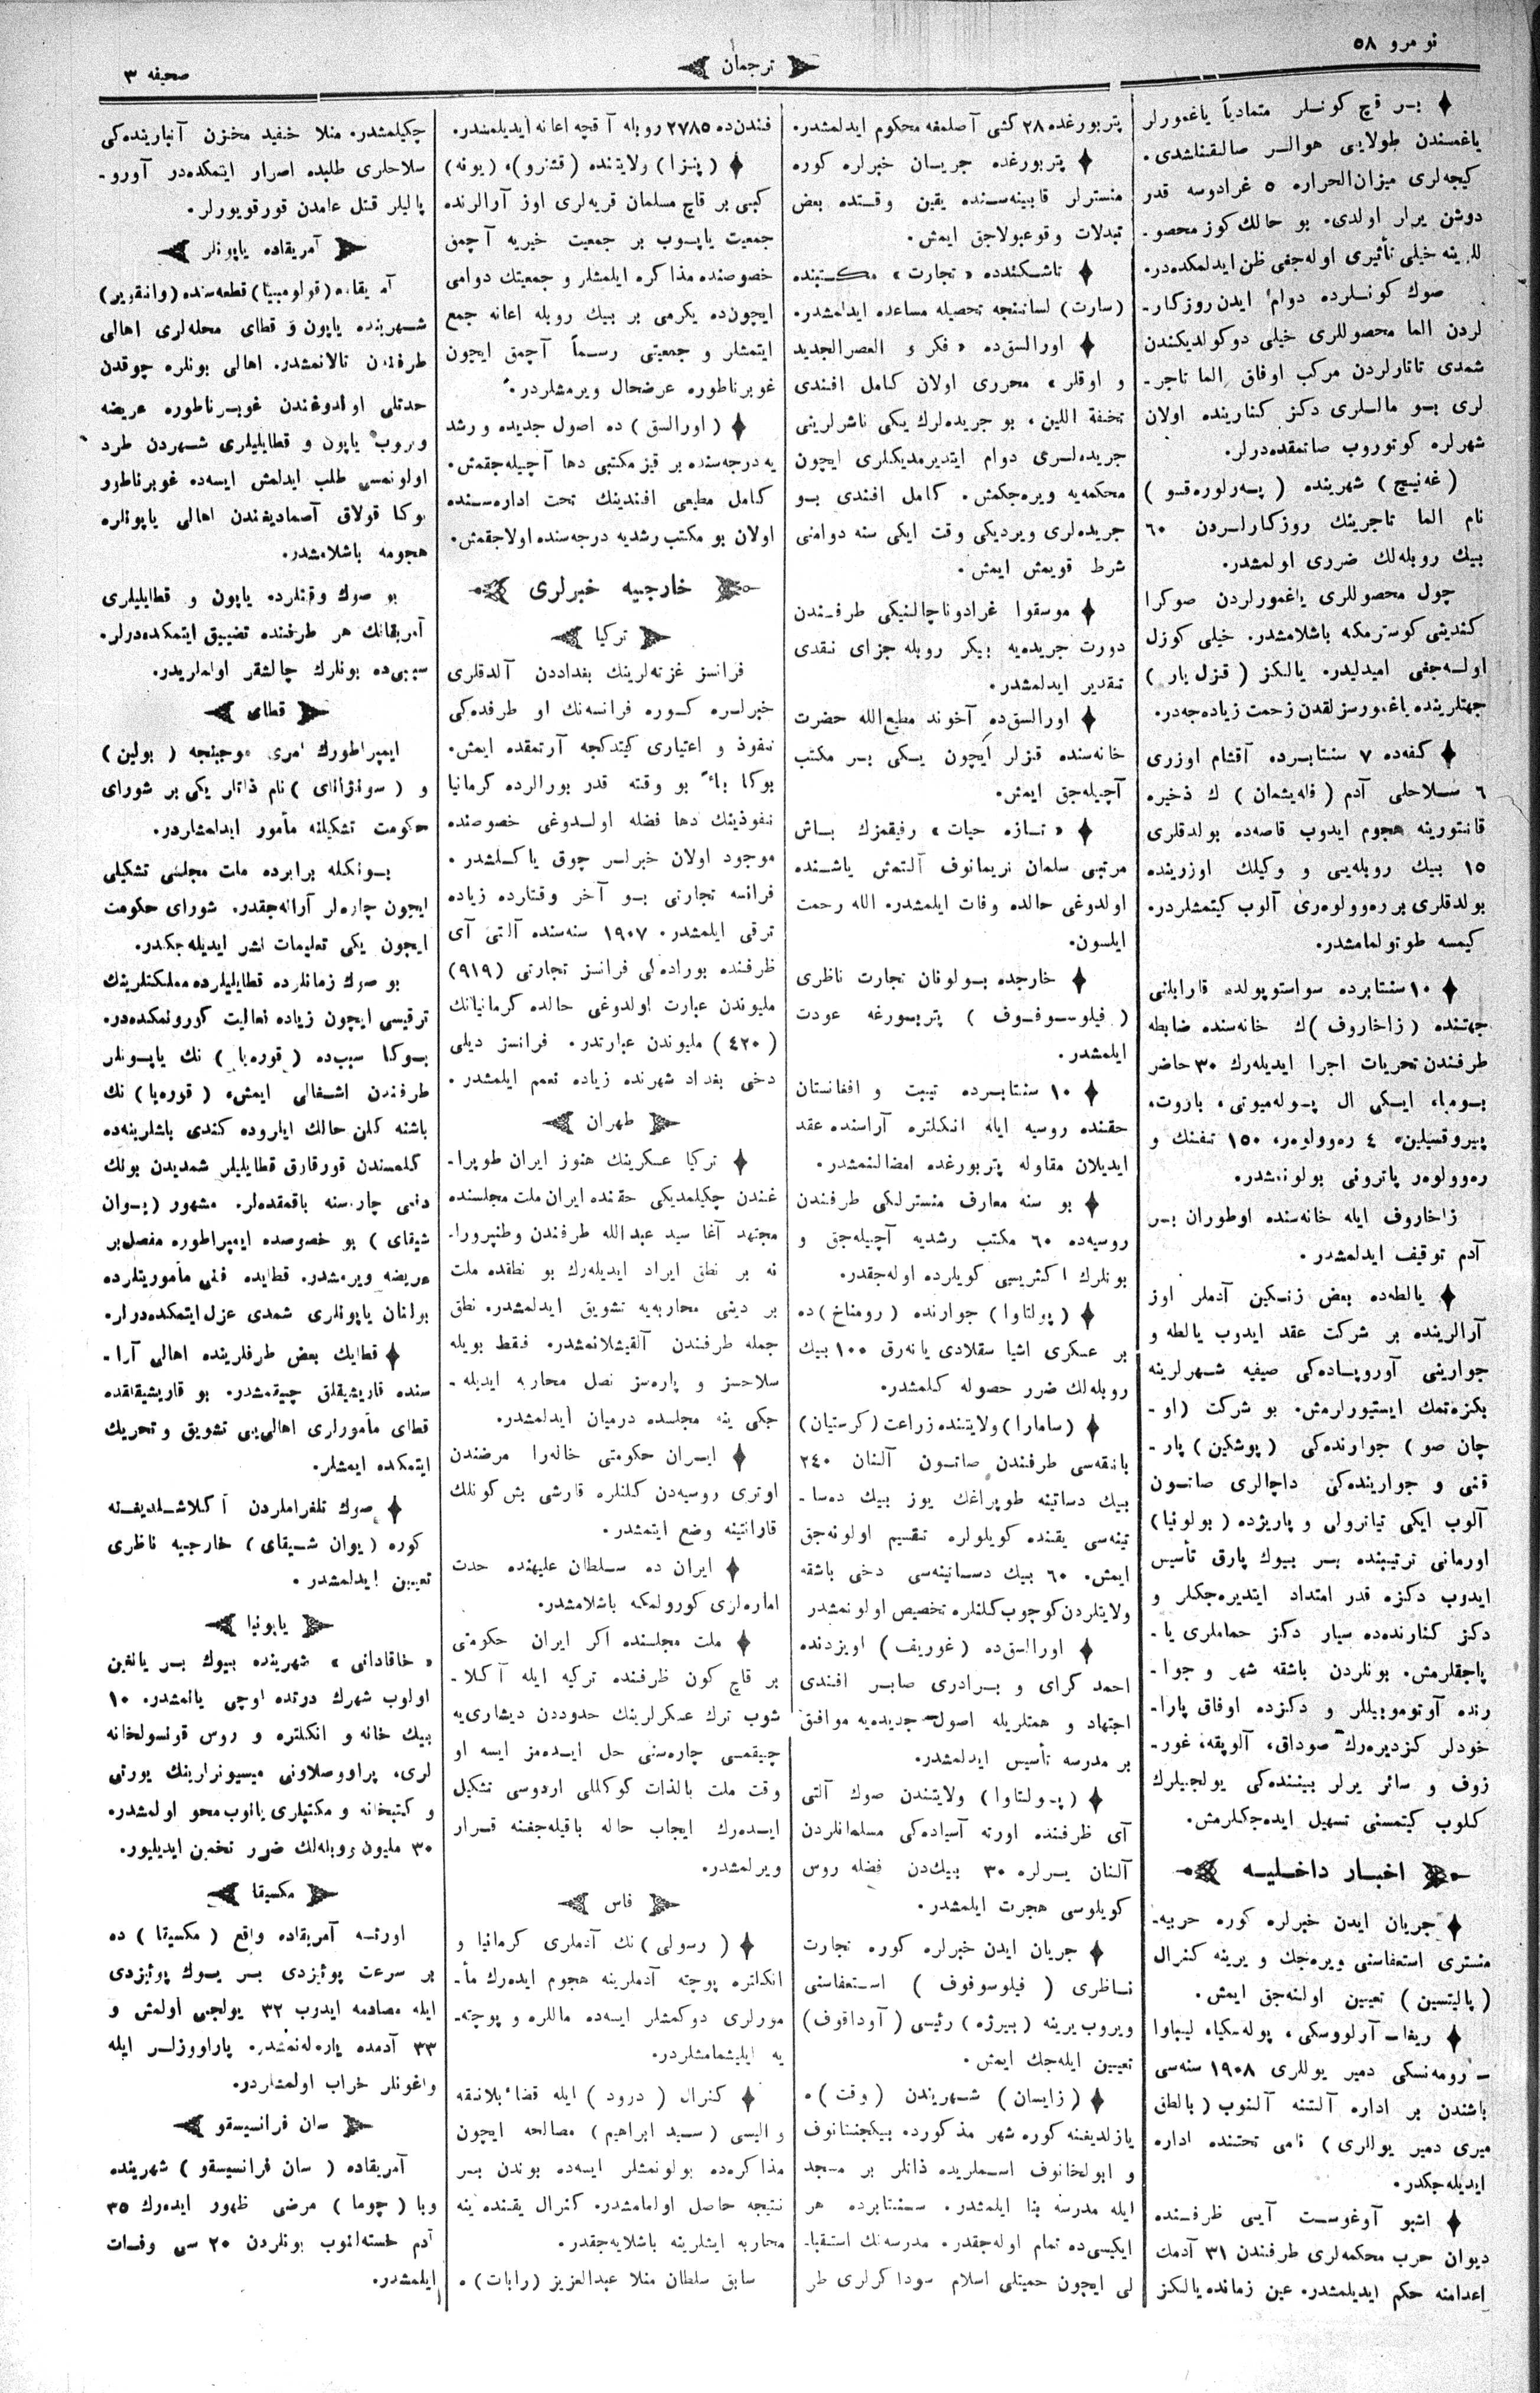 نومرو ٥٨
ترجمان
صحیفه ٣
بر قچ كونلر متمادیاً یاغمورلر
یاغمسندن طولایی هوالر صالقنلاشدی.
كیجه‌لری میزان‌الحراره ٥ غرادوسه قدر
دوشن یرلر اولدی. بو حالك كوز محصو-
للرینه خیلی تأثیری اوله‌جغی ظن ایدلمكده‌در.
صوك كونلرده دوام ایدن روزكار-
لردن الما محصوللری خیلی دوكولدیكندن
شمدی تاتارلردن مركب اوفاق الما تاجر-
لری بو ماللری دكز كنارینده اولان
شهرلره كوتوروب صاتمقده‌درلر.
(غه‌نیچ) شهرینده (په‌رلوره‌قسو)
نام الما تاجرینك روزكارلردن ٦٠
بیك روبله‌لك ضرری اولمشدر.
چول محصوللری یاغمورلردن صوكرا
كندینی كوسترمكه باشلامشدر. خیلی كوزل
اوله‌جغی امیدلیدر. یالكز (قزل یار)
جهتلرینده یاغمورسزلقدن زحمت زیاده‌جه‌در.
كفه‌ده ٧ سنتابرده آقشام اوزری
٦ سلاحلی آدم (فله‌یشمان) ك ذخیره
قانتورینه هجوم ایدوب قاصه‌ده بولدقلری
١٥ بیك روبله‌یی و وكیلك اوزرینده
بولدقلری بر ره‌وولوه‌ری آلوب كیتمشلردر.
كیمسه طوتولمامشدر.
١٠ سنتابرده سواستوپولده قارابلنی
جهتنده (زاخاروف)ك خانه‌سنده ضابطه
طرفندن تحریات اجرا ایدیله‌رك ٣٠ حاضر
بومبا، ایكی ال پوله‌میوتی، باروت،
پیروقسیلین، ٤ ره‌وولوه‌ر، ١٥٠ تفنك و
ره‌وولوه‌ر پاترونی بولونمشدر.
زاخاروف ایله خانه‌سنده اوطوران بر
آدم توقیف ایدلمشدر.
یالطه‌ده بعض زنكین آدملر اوز
آرالرینده بر شركت عقد ایدوب یالطه و
جوارینی آوروپاده‌كی صیفیه شهرلرینه
بكزه‌تمك ایستیورلرمش. بو شركت (او-
چان صو) جوارنده‌كی (پوشكین) پار-
قنی و جوارینده‌كی داچالری صاتون
آلوب ایكی تیاترولی و پاریژده (بولونیا)
اورمانی ترتیبنده بر بیوك پارق تأسیس
ایدوب دكزه قدر امتداد ایتدیره‌جكلر و
دكز كنارنده‌ده سیار دكز حماملری یا-
پاجقلرمش. بونلردن باشقه شهر و جوا-
رنده آوتوموبیللر و دكزده اوفاق پارا-
خودلر كزدیره‌رك صوداق، آلوپقه، غور-
زوف و سائر یرلر بیننده‌كی یولجیلرك
كلوب كیتمسنی تسهیل ایده‌جكلرمش.
اخبار داخلیه
جریان ایدن خبرلره كوره حربیه-
منستری استعفاسنی ویره‌جك و یرینه كنرال
(پالیتسین) تعیین اولنه‌جق ایمش.
ریغا - آرلووسكی، پوله‌سكیا، لیباوا
- رومه‌نسكی دمیر یوللری ١٩٠٨ سنه‌سی
باشندن بر اداره آلتنه آلنوب (بالطق
میری دمیر یوللری) نامی تحتنده اداره
ایدیله‌جكدر.
اشبو آوغوست آیی ظرفنده
دیوان حرب محكمه‌لری طرفندن ٣١ آدمك
اعدامنه حكم ایدیلمشدر. عین زمانده یالكز
پتربورغده ٢٨ كشی آصلمغه محكوم ایدلمشدر.
پتربورغده جریان خبرلره كوره
منسترلر قابینه‌سنده یقین وقتده بعض
تبدلات وقوعبولاجق ایمش.
تاشكندده «تجارت» مكتبنده
(سارت) لسانینجه تحصیله مساعده ایدلمشدر.
اورالسق‌ده «فكر و العصرالجدید
و اوقلر» محرری اولان كامل افندی
تحفة اللین، بو جریده‌لرك یكی ناشرلرینی
جریده‌لری دوام ایتدیرمدیكلری ایچون
محكمه‌یه ویره‌جكمش. كامل افندی بو
جریده‌لری ویردیكی وقت ایكی سنه دوامنی
شرط قویمش ایمش.
موسقوا غرادوناچالنیكی طرفندن
دورت جریده‌یه بیكر روبله جزای نقدی
تقدیر ایدلمشدر.
اورالسق‌ده آخوند مطیع‌الله حضرت
خانه‌سنده قزلر ایچون یكی بر مكتب
آچیله‌جق ایمش.
«تازه حیات» رفیقمزك باش
مرتبی سلمان نریمانوف آلتمش یاشنده
اولدوغی حالده وفات ایلمشدر. الله رحمت
ایلسون.
خارجده بولونان تجارت ناظری
(فیلوسوفوف) پتربورغه عودت
ایلمشدر.
١٠ سنتابرده تیبت و افغانستان
حقنده روسیه ایله انكلتره آراسنده عقد
ایدیلان مقاوله پتربورغده امضالنمشدر.
بو سنه معارف منسترلكی طرفندن
روسیه‌ده ٦٠ مكتب رشدیه آچیله‌جق و
بونلرك اكثریسی كویلرده اوله‌جقدر.
(پولتاوا) جوارنده (رومناخ)ده
بر عسكری اشیا سقلادی یانه‌رق ١٠٠ بیك
روبله‌لك ضرر حصوله كلمشدر.
(سامارا) ولایتنده زراعت (كرستیان)
بانقه‌سی طرفندن صاتون آلنان ٢٤٠
بیك دساتینه طوپراغك یوز بیك ده‌سا-
تینه‌سی یقنده كویلولره تقسیم اولونه‌جق
ایمش. ٦٠ بیك دساتینه‌سی دخی باشقه
ولایتلردن كوچوب كلنلره تخصیص اولونمشدر
اورالسق‌ده (غوریف) اویزدنده
احمد كرای و برادری صابر افندی
اجتهاد و همتلریله اصول جدیده‌یه موافق
بر مدرسه تأسیس ایدلمشدر.
(پولتاوا) ولایتندن صوك آلتی
آی ظرفنده اورته آسیاده‌كی مسلمانلردن
آلنان یرلره ٣٠ بیك‌دن فضله روس
كویلوسی هجرت ایلمشدر.
جریان ایدن خبرلره كوره تجارت
ناظری (فیلوسوفوف) استعفاسنی
ویروب یرینه (بیرژه) رئیسی (آوداقوف)
تعیین ایله‌جك ایمش.
(زایسان) شهریندن (وقت)ه
یازلدیغنه كوره شهر مذكورده بیكجنتانوف
و ابولخانوف اسملریده ذاتلر بر مسجد
ایله مدرسه بنا ایلمشدر. سنتابرده هر
ایكیسی‌ده تمام اوله‌جقدر. مدرسه‌نك استقبا-
لی ایچون حمیتلی اسلام سوداكرلری طر
فندن‌ده ٢٧٨٥ روبله آقچه اعانه ایدیلمشدر.
(پنزا) ولایتنده (قشنرو)، (یونه)
كبی بر قاچ مسلمان قریه‌لری اوز آرالرنده
جمعیت یاپوب بر جمعیت خیریه آچمق
خصوصنده مذاكره ایلمشلر و جمعیتك دوامی
ایچون‌ده یكرمی بر بیك روبله اعانه جمع
ایتمشلر و جمعیتی رسماً آچمق ایچون
غوبرناطوره عرضحال ویرمشلردر.
(اورالسق) ده اصول جدیده و رشد
یه درجه‌سنده بر قیز مكتبی دها آچیله‌جقمش.
كامل مطیعی افندینك تحت اداره‌سنده
اولان بو مكتب رشدیه درجه‌سنده اولاجقمش.
خارجیه خبرلری
تركیا
فرانسز غزته‌لرینك بغداددن آلدقلری
خبرلره كوره فرانسه‌نك او طرفده‌كی
نفوذ و اعتباری كیتدكجه آرتمقده ایمش.
بوكا بناءً بو وقته قدر بورالرده كرمانیا
نفوذینك دها فضله اولدوغی خصوصنده
موجود اولان خبرلر چوق یاكلشدر.
فرانسه تجارتی بو آخر وقتلرده زیاده
ترقی ایلمشدر. ١٩٠٧ سنه‌سنده آلتی آی
ظرفنده بوراده‌كی فرانسز تجارتی (٩١٩)
ملیوندن عبارت اولدوغی حالده كرمانیانك
(٤٢٠) ملیوندن عبارتدر. فرانسز دیلی
دخی بغداد شهرنده زیاده تعمم ایلمشدر.
طهران
تركیا عسكرینك هنوز ایران طوپرا-
غندن چكیلمدیكی حقنده ایران ملت مجلسنده
مجتهد آغا سید عبدالله طرفندن وطنپرورا-
نه بر نطق ایراد ایدیله‌رك بو نطقده ملت
بر دینی محاربه‌یه تشویق ایدلمشدر. نطق
جمله طرفندن آلقیشلانمشدر. فقط بویله
سلاحسز و پاره‌سز نصل محاربه ایدیله-
جكی ینه مجلسده درمیان ایدلمشدر.
ایران حكومتی خاله‌را مرضندن
اوتری روسیه‌دن كلنلره قارشی بش كونلك
قارانتینه وضع ایتمشدر.
ایران ده سلطان علیهنده حدت
اماره‌لری كورولمكه باشلامشدر.
ملت مجلسنده اكر ایران حكومتی
بر قاچ كون ظرفنده تركیه ایله آكلا-
شوب ترك عسكرلرینك حدوددن دیشاری‌یه
چیقمسی چاره‌سنی حل ایده‌مز ایسه او
وقت ملت بالذات كوكللی اردوسی تشكیل
ایده‌رك ایجاب حاله باقیله‌جغنه قرار
ویرلمشدر.
فاس
(رسولی)نك آدملری كرمانیا و
انكلتره پوچته آدملرینه هجوم ایده‌رك مأ-
مورلری دوكمشلر ایسه‌ده ماللره و پوچته-
یه ایلیشمامشلردر.
كنرال (درود) ایله قضائبلانقه
والیسی (سید ابراهیم) مصالحه ایچون
مذاكره‌ده بولونمشلر ایسه‌ده بوندن بر
نتیجه حاصل اولمامشدر. كنرال یقنده ینه
محاربه ایشلرینه باشلایه‌جقدر.
سابق سلطان منلا عبدالعزیز (رابات)ه
چكیلمشدر. منلا خفید مخزن آنبارینده‌كی
سلاحلری طلبده اصرار ایتمكده‌در آورو-
پالیلر قتل عامدن قورقویورلر.
آمریقاده یاپونلر
آمریقاده (قولومبیا) قطعه‌سنده (وانقویر)
شهرینده یاپون و قطای محله‌لری اهالی
طرفندن تالانمشدر. اهالی بونلره چوقدن
حدتلی اولدوغندن غوبرناطوره عریضه
ویروب یاپون و قطایلیلری شهردن طرد
اولونمسی طلب ایدلمش ایسه‌ده غوبرناطور
بوكا قولاق آصمادیغندن اهالی یاپونلره
هجومه باشلامشدر.
بو صوك وقتلرده یاپون و قطایلیلری
آمریقانك هر طرفنده تضییق ایتمكده‌درلر.
سببی‌ده بونلرك چالشقر اولملریدر.
قطای
ایمپراطورك امری موجبنجه (بولین)
و (سونژانای) نام ذاتلر یكی بر شورای
حكومت تشكیلنه مأمور ایدلمشلردر.
بونكله برابرده ملت مجلسی تشكیلی
ایچون چاره‌لر آرانه‌جقدر. شورای حكومت
ایچون یكی تعلیمات نشر ایدیله‌جكدر.
بو صوك زمانلرده قطایلیلرده مملكتلرینك
ترقیسی ایچون زیاده فعالیت كورونمكده‌در.
بوكا سبب‌ده (قوره‌یا)نك یاپونلر
طرفندن اشغالی ایمش. (قوره‌یا)نك
باشنه كلن حالك ایلروده كندی باشلرینه‌ده
كلمسندن قورقارق قطایلیلر شمدیدن بونك
دفعی چاره‌سنه باقمقده‌لر. مشهور (یوان
شیقای) بو خصوصده ایمپراطوره مفصل بر
عریضه ویرمشدر. قطایده فنی مأموریتلرده
بولنان یاپونلری شمدی عزل ایتمكده‌درلر.
قطایك بعض طرفلرینده اهالی آرا-
سنده قاریشیقلق چیقمشدر. بو قاریشیقلقده
قطای مأمورلری اهالی‌یی تشویق و تحریك
ایتمكده ایمشلر.
صوك تلغرافلردن آكلاشلدیغنه
كوره (یوان شیقای) خارجیه ناظری
تعیین ایدلمشدر.
یاپونیا
«خاقادانی» شهرینده بیوك بر یانغین
اولوب شهرك درتده اوچی یانمشدر. ١٠
بیك خانه و انكلتره و روس قونسولخانه
لری، پراووصلاونی میسیونرلرینك یورتی
و كتبخانه و مكتبلری یانوب محو اولمشدر.
٣٠ ملیون روبله‌لك ضرر تخمین ایدیلیور.
مكسیقا
اورته آمریقاده واقع (مكسیقا) ده
بر سرعت پوئیزدی بر یوك پوئیزدی
ایله مصادمه ایدرب ٣٢ یولجی اولمش و
٣٣ آدمده یاره‌له‌نمشدر. پاراووزلر ایله
واغونلر خراب اولمشلردر.
سان فرانسیسقو
آمریقاده (سان فرانسیسقو) شهرینده
وبا (چوما) مرضی ظهور ایده‌رك ٣٥
آدم خسته‌لنوب بونلردن ٢٠ سی وفات
ایلمشدر.